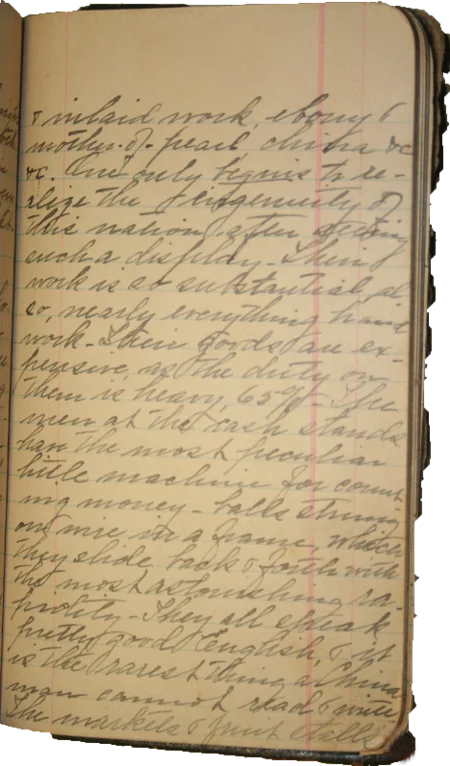 & inlaid work, ebony &
mother-of-pearl, china &c
&c. One only begins to re-
alize the ingenuity of
this nation after seeing
such a display. Their
work is so substantial, al-
so, nearly everything hand
work. Their goods are ex-
pensive, as the duty on
them is heavy, 65%. The
men at the cash stands
have the most peculiar
little machine for count
ing money - balls strung
on wire in a frame, which
they slide back & forth with
the most astonishing ra-
pidity - They all speak
pretty good English, & it
is the rarest thing a China
man cannot read & write
The markets & fruit stalls